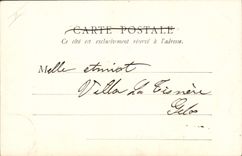 CARTE POSTALE
Ce côté est exclusivement réservé à l'adresse.
Melle
Villa La Tisnère
Gelos